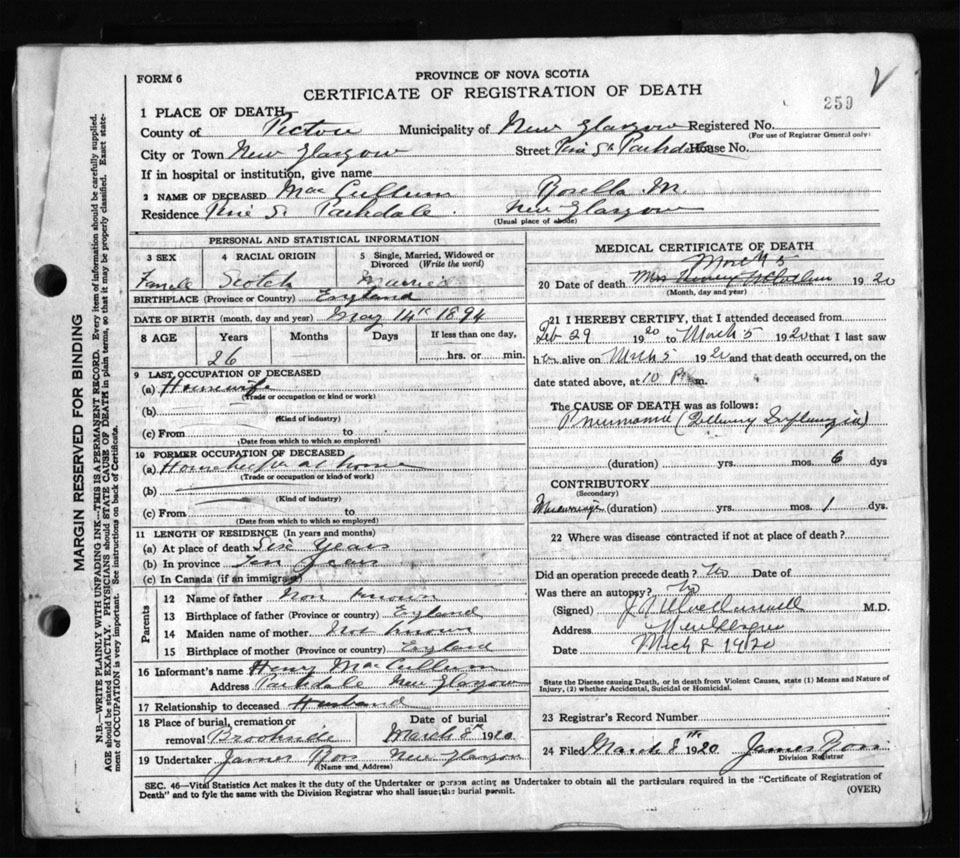 FORM 6
PROVINCE OF NOVA SCOTIA
CERTIFICATE OF REGISTRATION OF DEATH
259
1 PLACE OF DEATH
County of Pictou Municipality of New Glasgow Registered No.
(For use of Registrar General only)
City or Town New Glasgow Street Parkdale House No.
If in hospital or institution, give name
2 NAME OF DECEASED MacCullum M.
Residence Parkdale New Glasgow
(Usual place of abode)
PERSONAL AND STATISTICAL INFORMATION
3 SEX 4 RACIAL ORIGIN 5 Single, Married, Widowed or Divorced (Write the word)
Female Scotch Married
BIRTHPLACE (Province or Country) England
DATE OF BIRTH (month, day and year) May 14th 1894
8 AGE Years Months Days If less than one day,
26 hrs. or min.
9 LAST OCCUPATION OF DECEASED
(a) Housewife
(Trade or occupation or kind or work)
(b)
(Kind of industry)
(c) From to
(Date from which to which so employed)
10 FORMER OCCUPATION OF DECEASED
(a) at home
(Trade or occupation or kind of work)
(b)
(Kind of industry)
(c) From to
(Date from which to which so employed)
11 LENGTH OF RESIDENCE (In years and months)
(a) At place of death Six Years
(b) In province Ten Years
(c) In Canada (if an immigrant)
Parents
12 Name of father Non Known
13 Birthplace of father (Province or country) England
14 Maiden name of mother Not Known
15 Birthplace of mother (Province or country) England
16 Informant's name Henry MacCullum
Address Parkdale New Glasgow
17 Relationship to deceased Husband
18 Place of burial, cremation or removal Brookside
Date of burial March 8th 1920
19 Undertaker James Ross New Glasgow
(Name and Address)
MEDICAL CERTIFICATE OF DEATH
March 5
20 Date of death 1920
(Month, day and year)
21 I HEREBY CERTIFY, that I attended deceased from
Feb 29 1920 to March 5 1920 that I last saw
alive on March 5 1920 and that death occurred, on the
date stated above, at 10 P.m.
The CAUSE OF DEATH was as follows:
Pneumonia (following Influenza)
(duration) yrs. mos. 6 dys
CONTRIBUTORY
(Secondary)
(duration) yrs. mos. 1 dys.
22 Where was disease contracted if not at place of death?
Did an operation precede death? No Date of
Was there an autopsy? No
(Signed) M.D.
Address New Glasgow
Date Mch 8 1920
State the Disease causing Death, or in death from Violent Causes, state (1) Means and Nature of
Injury, (2) whether Accidental, Suicidal or Homicidal.
23 Registrar's Record Number
24 Filed March 8th 1920 James Ross
Division Registrar
SEC. 46—Vital Statistics Act makes it the duty of the Undertaker or person acting as Undertaker to obtain all the particulars required in the "Certificate of Registration of
Death" and to fyle the same with the Division Registrar who shall issue the burial permit.
(OVER)
MARGIN RESERVED FOR BINDING
N.B.—WRITE PLAINLY WITH UNFADING INK—THIS IS A PERMANENT RECORD. Every item of information should be carefully supplied.
AGE should be stated EXACTLY. PHYSICIANS should STATE CAUSE OF DEATH in plain terms, so that it may be properly classified. Exact state-
ment of OCCUPATION is very important. See instructions on back of Certificate.